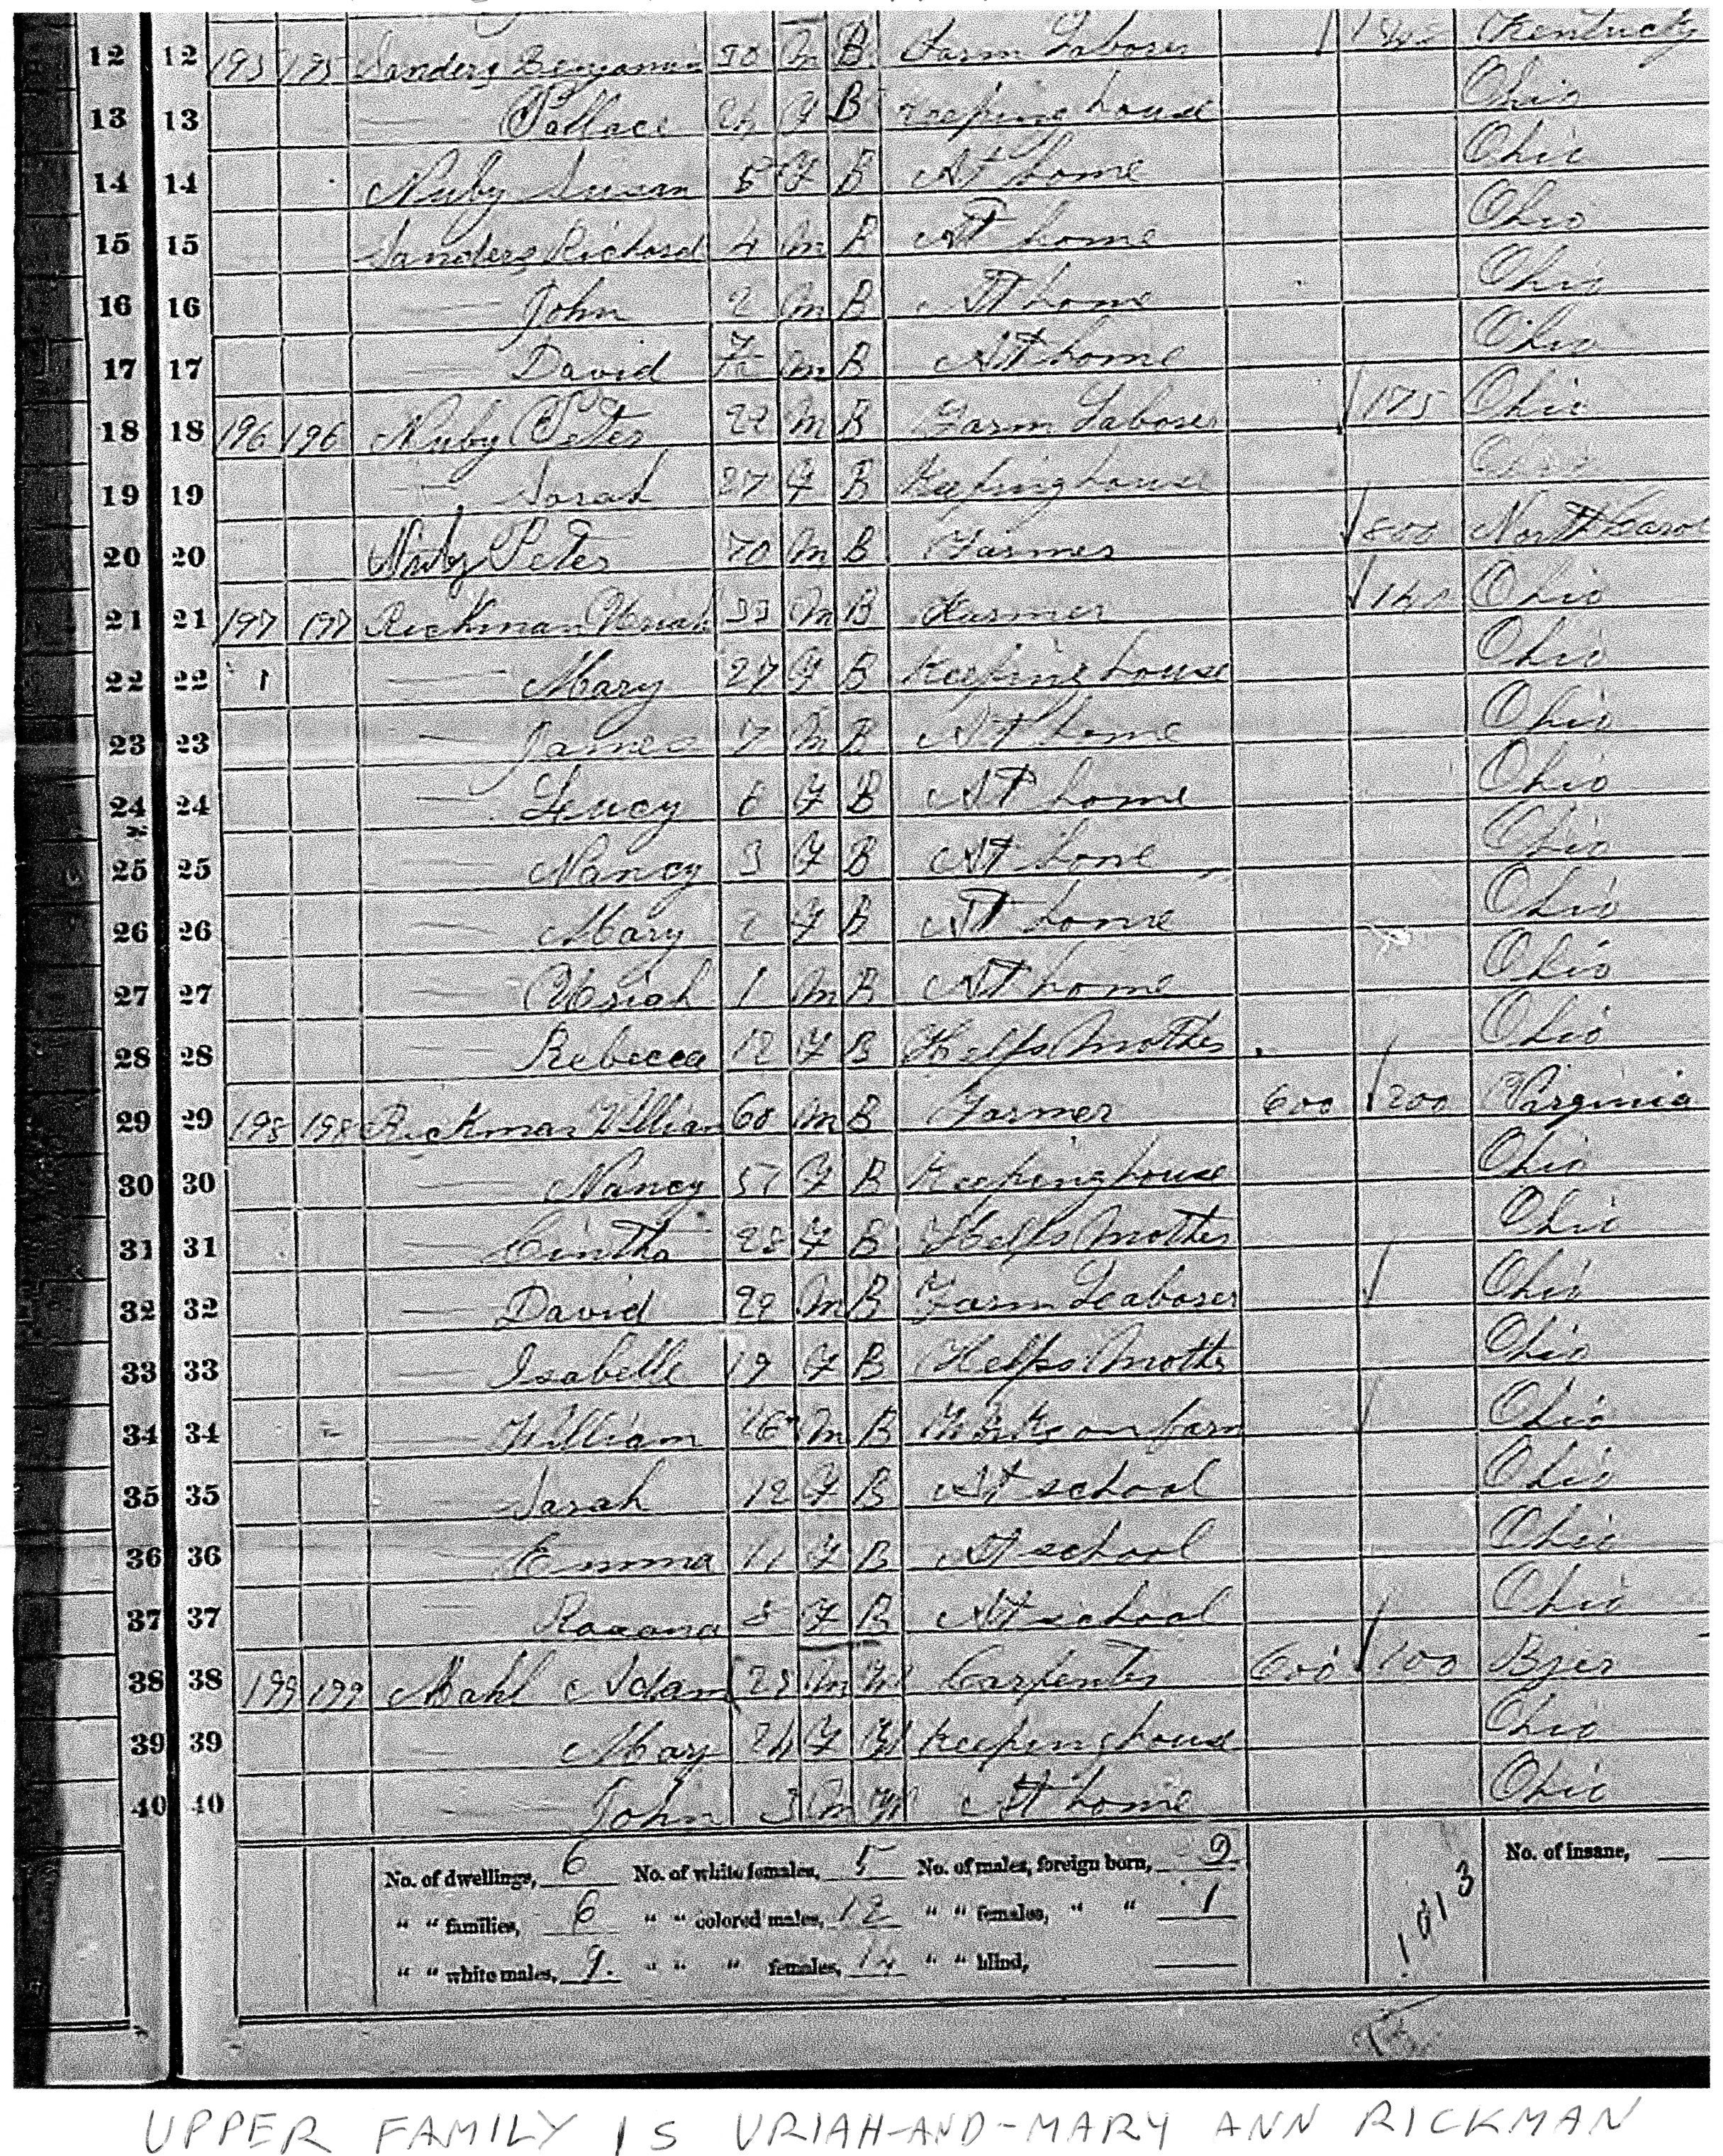 12 12 195 195 Sanders Benjamin 30 M B Farm Laborer Kentucky
13 13 — Pallace 24 F B Keeping house Ohio
14 14 Nuby Susan 5 F B At home Ohio
15 15 Sanders Richard 4 M B At home Ohio
16 16 — John 2 M B At home Ohio
17 17 — David M B At home Ohio
18 18 196 196 Nuby Peter 22 M B Farm Laborer 175 Ohio
19 19 — Sarah 27 F B Keeping house Ohio
20 20 Nuby Peter 70 M B Farmer 800 North Carol
21 21 197 197 Rickman Uriah 33 M B Farmer Ohio
22 22 1 — Mary 27 F B Keeping house Ohio
23 23 — James 7 M B At home Ohio
24 24 — Leucy 6 F B At home Ohio
25 25 — Nancy 3 F B At home Ohio
26 26 — Mary 2 F B At home Ohio
27 27 — Uriah 1 M B At home Ohio
28 28 — Rebecca 12 F B Helps Mother Ohio
29 29 198 198 Rickman William 60 M B Farmer 600 200 Virginia
30 30 — Nancy 57 F B Keeping house Ohio
31 31 — Cintha 28 F B Helps Mother Ohio
32 32 — David 22 M B Farm Leaborer Ohio
33 33 — Isabelle 19 F B Helps Mother Ohio
34 34 — William 16 M B Works on farm Ohio
35 35 — Sarah 12 F B At school Ohio
36 36 — Emma 11 F B At school Ohio
37 37 — Roxana F B At school Ohio
38 38 199 199 Mahl Adam 28 M W Carpenter 600 100
39 39 — Mary 24 F W Keeping house Ohio
40 40 — John 3 M W At home Ohio
No. of dwellings, 6 No. of white females, 5 No. of males, foreign born, 2 No. of insane,
" " families, 6 " " colored males, 12 " " females, " " 1
" " white males, 9. " " " females, 14 " " blind,
1013
UPPER FAMILY IS URIAH-AND-MARY ANN RICKMAN